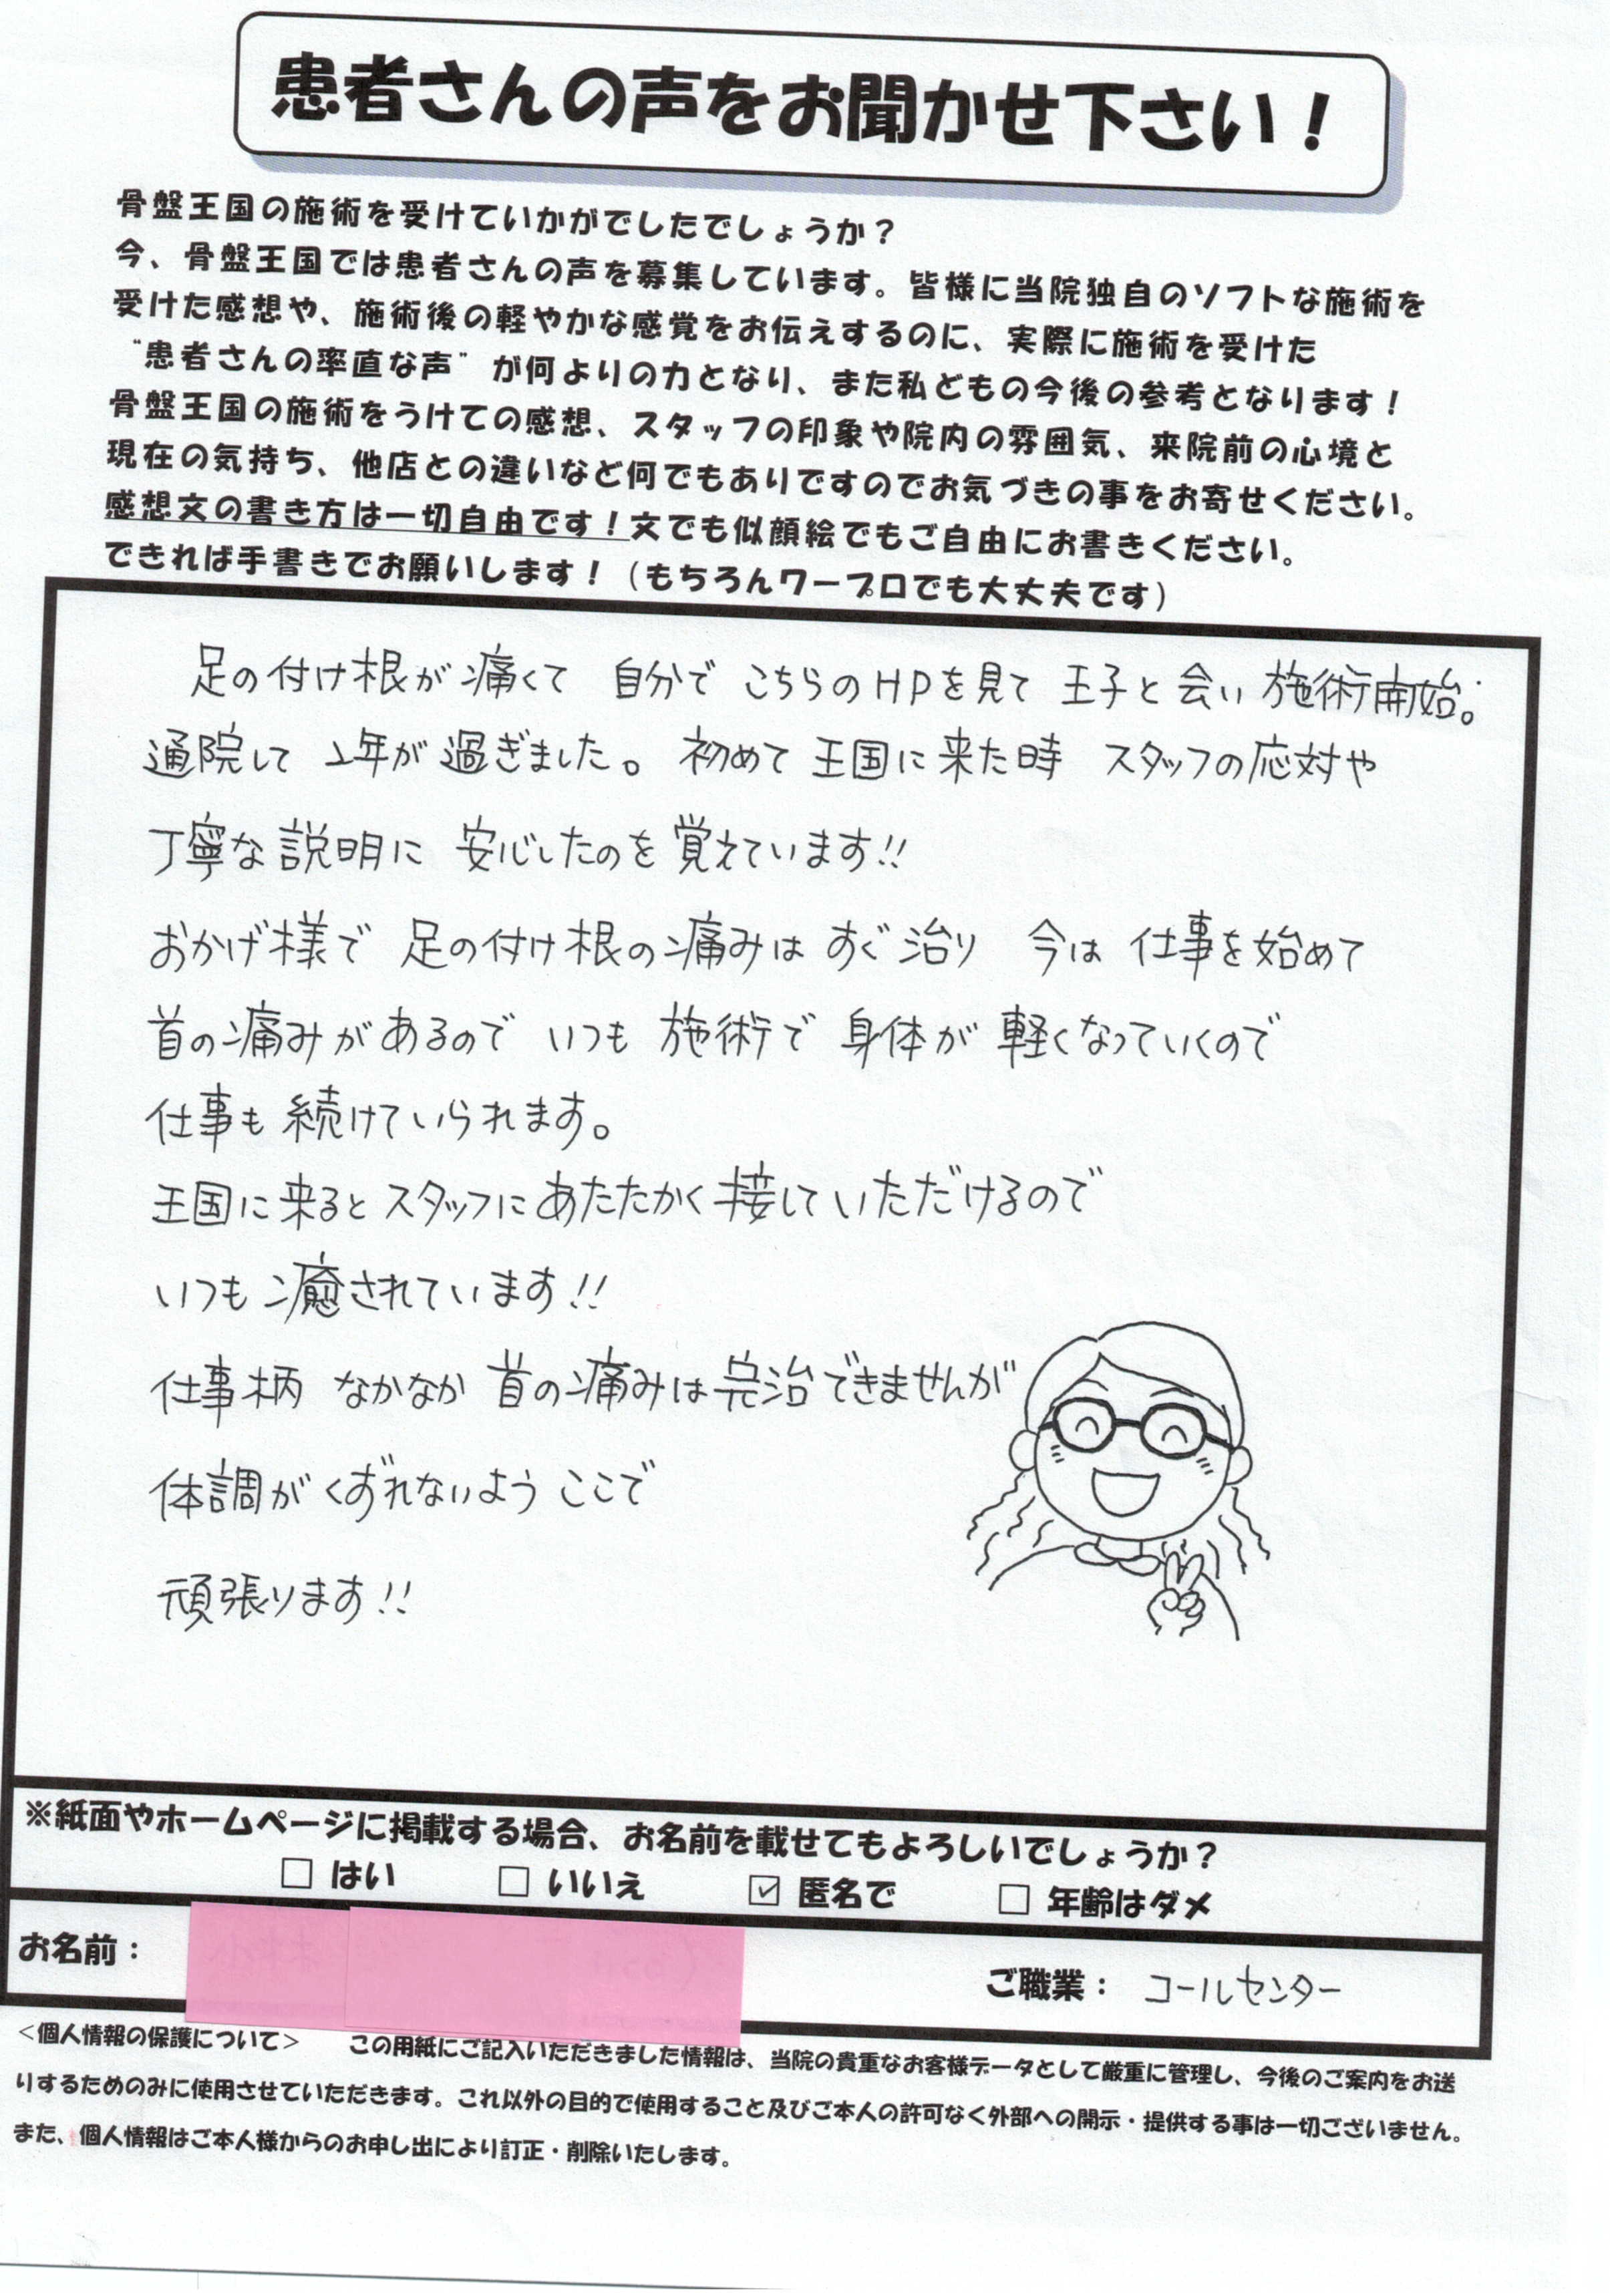 患者さんの声をお聞かせ下さい！
骨盤王国の施術を受けていかがでしたでしょうか？
今、骨盤王国では患者さんの声を募集しています。皆様に当院独自のソフトな施術を
受けた感想や、施術後の軽やかな感覚をお伝えするのに、実際に施術を受けた
“患者さんの率直な声”が何よりの力となり、また私どもの今後の参考となります！
骨盤王国の施術をうけての感想、スタッフの印象や院内の雰囲気、来院前の心境と
現在の気持ち、他店との違いなど何でもありですのでお気づきの事をお寄せください。
感想文の書き方は一切自由です！文でも似顔絵でもご自由にお書きください。
できれば手書きでお願いします！（もちろんワープロでも大丈夫です）
足の付け根が痛くて 自分で こちらのHPを見て 王子と会い 施術開始。
通院して 2年が過ぎました。 初めて王国に来た時 スタッフの応対や
丁寧な説明に 安心したのを覚えています!!
おかげ様で 足の付け根の痛みは すぐ治り 今は 仕事を始めて
首の痛みがあるので いつも 施術で 身体が 軽くなっていくので
仕事も続けていられます。
王国に来るとスタッフにあたたかく接していただけるので
いつも癒されています!!
仕事柄 なかなか 首の痛みは完治できませんが
体調がくずれないよう ここで
頑張ります!!
※紙面やホームページに掲載する場合、お名前を載せてもよろしいでしょうか？
□ はい □ いいえ ☑ 匿名で □ 年齢はダメ
お名前： ご職業： コールセンター
＜個人情報の保護について＞ この用紙にご記入いただきました情報は、当院の貴重なお客様データとして厳重に管理し、今後のご案内をお送
りするためのみに使用させていただきます。これ以外の目的で使用すること及びご本人の許可なく外部への開示・提供する事は一切ございません。
また、個人情報はご本人様からのお申し出により訂正・削除いたします。